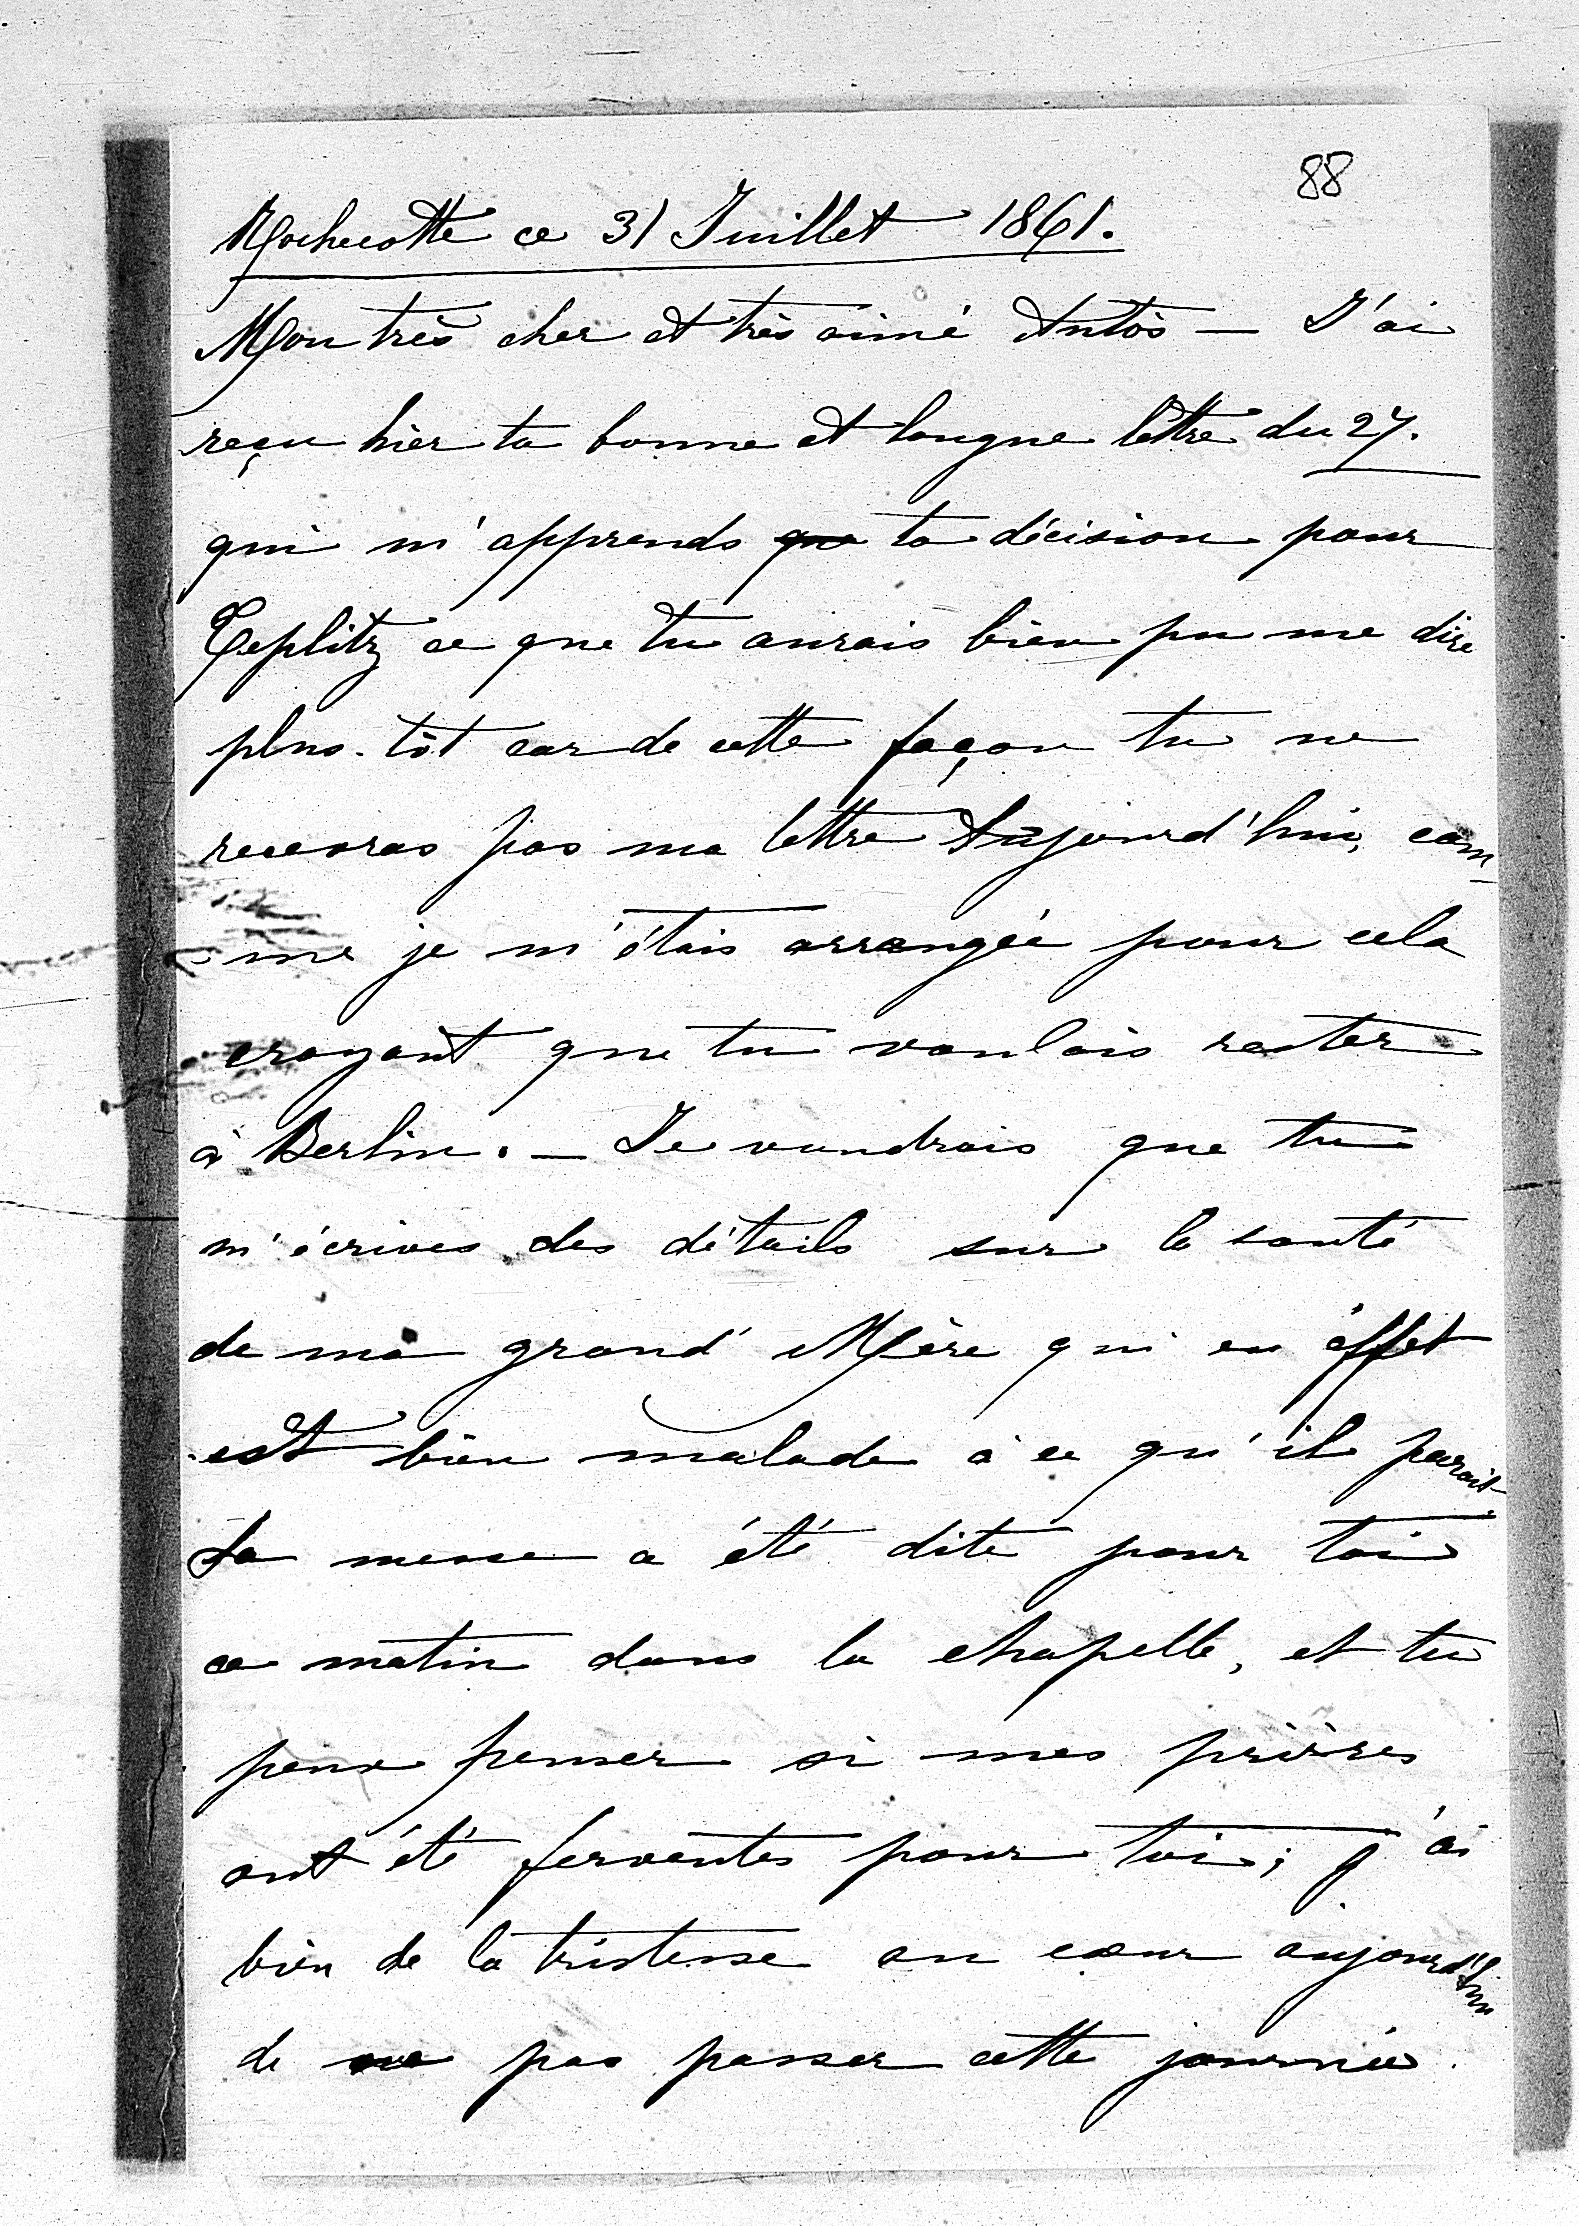 88
Rochecotte ce 31 Juillet 1861.
Mon très cher et très aimé Antòs — J'ai
reçu hier ta bonne et longue lettre du 27.
qui m'apprends que ta décision pour
Teplitz ce que tu aurais bien pu me dire
plus-tôt car de cette façon tu ne
recevras pas ma lettre Aujourd'hui, com-
-me je m'étais arrangée pour cela
croyant que tu voulais rester
à Berlin. — Je voudrais que tu
m'écrives des détails sur la santé
de ma grand'Mère qui en éffet
est bien malade à ce qu'il parait
La messe a été dite pour toi
ce matin dans la chapelle, et tu
peux penser si mes prières
ont été ferventes pour toi; j'ai
bien de la tristesse au cœur aujourd'hui
de ne pas passer cette journée